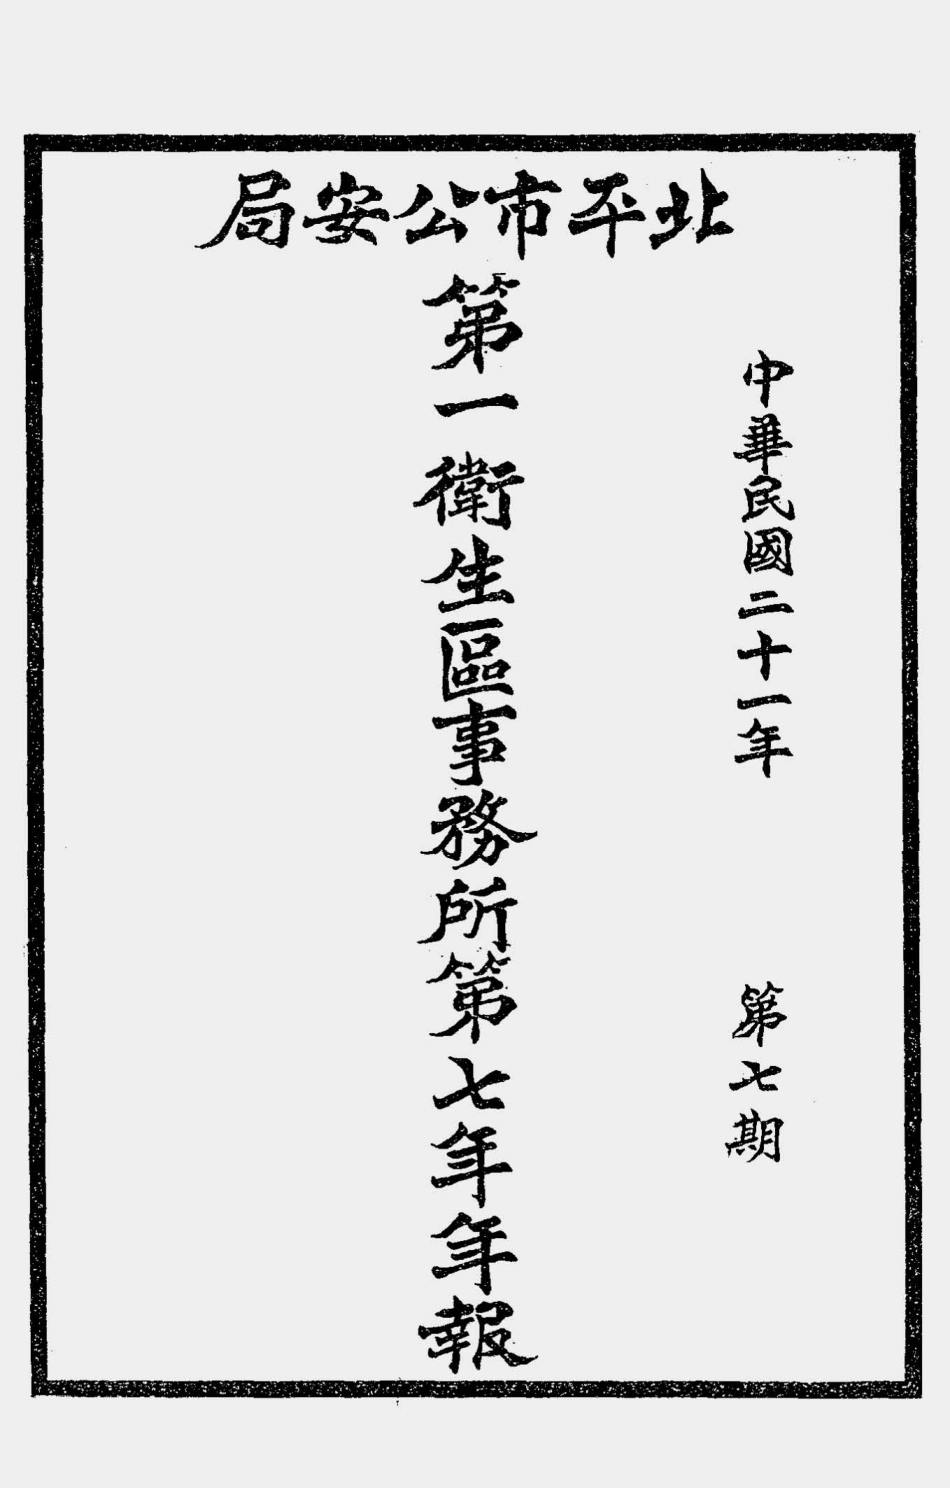 北平市公安局
中華民國二十一年
第七期
第一衛生區事務所第七年年報